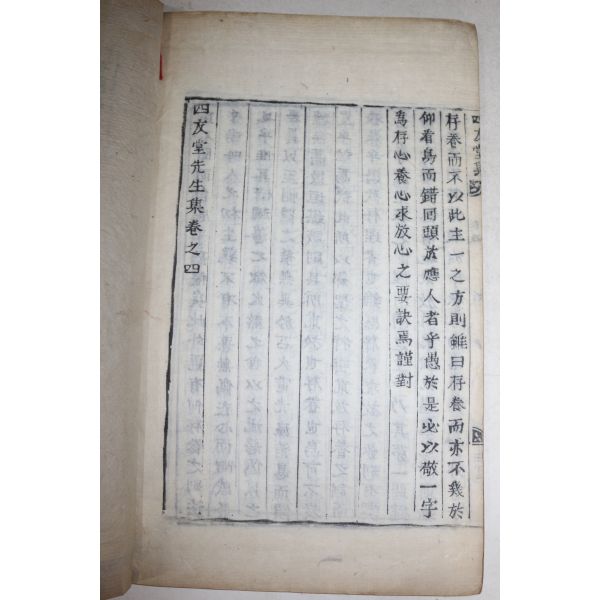 四友堂集
存養而不以此主一之方則雖曰存養而亦不幾於
仰看鳥而錯回頭於應人者乎愚於是必以敬一字
爲存心養心求放心之要訣焉謹對
四友堂先生集卷之四